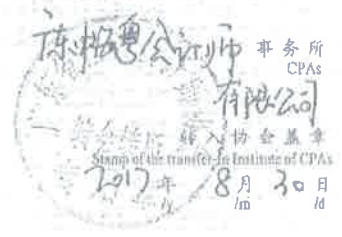 会计师 事务所
CPAs
有限公司
转入协会盖章
Stamp of the transfer-in Institute of CPAs
2017年 8月 30日
/y /m /d